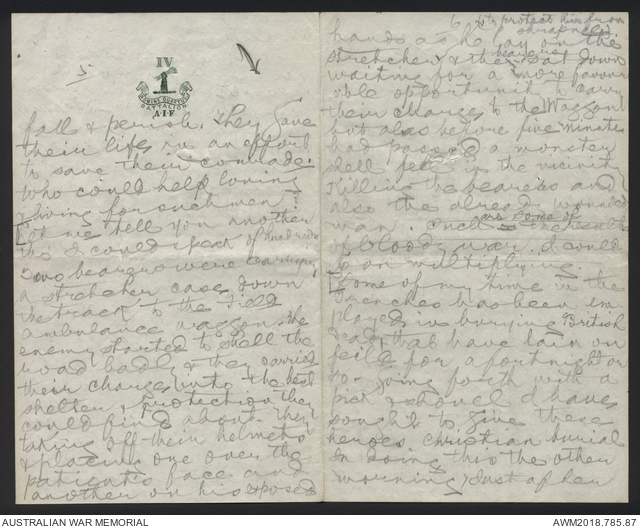 5
IV
BATTALION
A·I·F
fall & perish. They gave
their lives in an effort
to save their comrade.
Who could help loving
& living for such men?
Let me tell you another
this I could speak of hundreds
Two bearers were carrying
a stretcher case down
the track to the Field
ambulance waggon. The
enemy started to shell the
road badly & they carried
their charge into the best
shelter & protection they
could find about. They
taking off their helmets
& placing one over the
patient's face and
another on his exposed
6 to protect him from
shrapnel
hands as he lay on the
stretcher & the bearers sat down
waiting for a more favour
able opportunity to carry
their charge to the Waggon
but alas before five minutes
had passed a monster
shell fell in the vicinity
killing the bearers and
also the already wounded
man. Such are some of the results
of bloody war. I could
go on multiplying.
Some of my time in the
Trenches has been em
ployed in burying British
dead that have lain on
feild for a fortnight or
so. Going forth with a
pick & shovel I have
sought to give these
heroes Christian burial
In doing this the other
morning, Just after
AUSTRALIAN WAR MEMORIAL
AWM2018.785.87